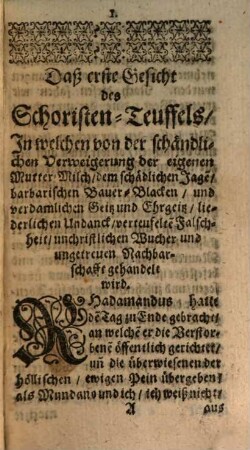 1.
Daß erste Gesicht
des
Schoristen-Teuffels/
In welchen von der schändli-
chen Verweigerung der eigenen
Mutter Milch/dem schädlichen Jagẽ/
barbarischen Bauer-Placken / und
verdamlichen Geitz und Ehrgeitz/ lie-
derlichen Undanck/verteufeltẽ Falsch-
heit/unchristlichen Wucher und
ungetreuen Nachbar-
schafft gehandelt
wird.
RHadamandus hatte
dẽ Tag zu Ende gebracht/
an welchẽ er die Verstor-
benẽ öffentlich gerichtet/
uñ die überwiesenen der
höllischen / ewigen Pein übergeben/
als Mundano und ich / ich weiß nicht/
A aus